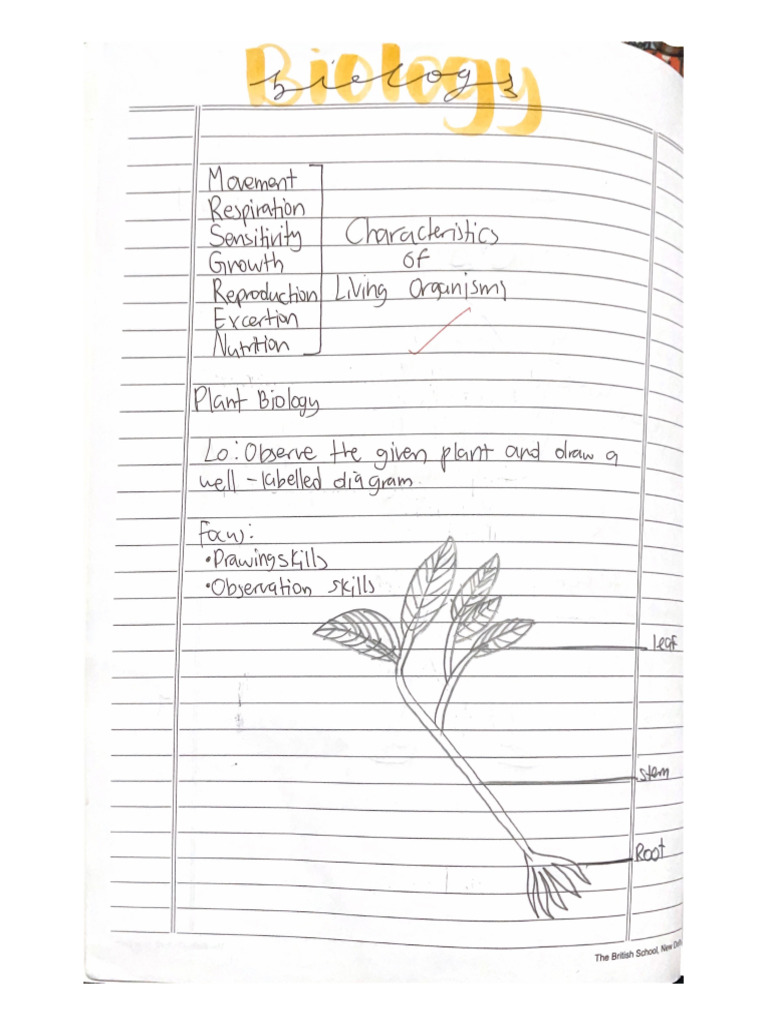 Biology
biology
Movement
Respiration
Sensitivity
Growth
Reproduction
Excertion
Nutrition
Characteristics
of
Living Organisms
Plant Biology
Lo: Observe the given plant and draw a
well - labelled diagram
Focus:
• Drawing skills
• Observation skills
leaf
stem
Root
The British School, New Delh